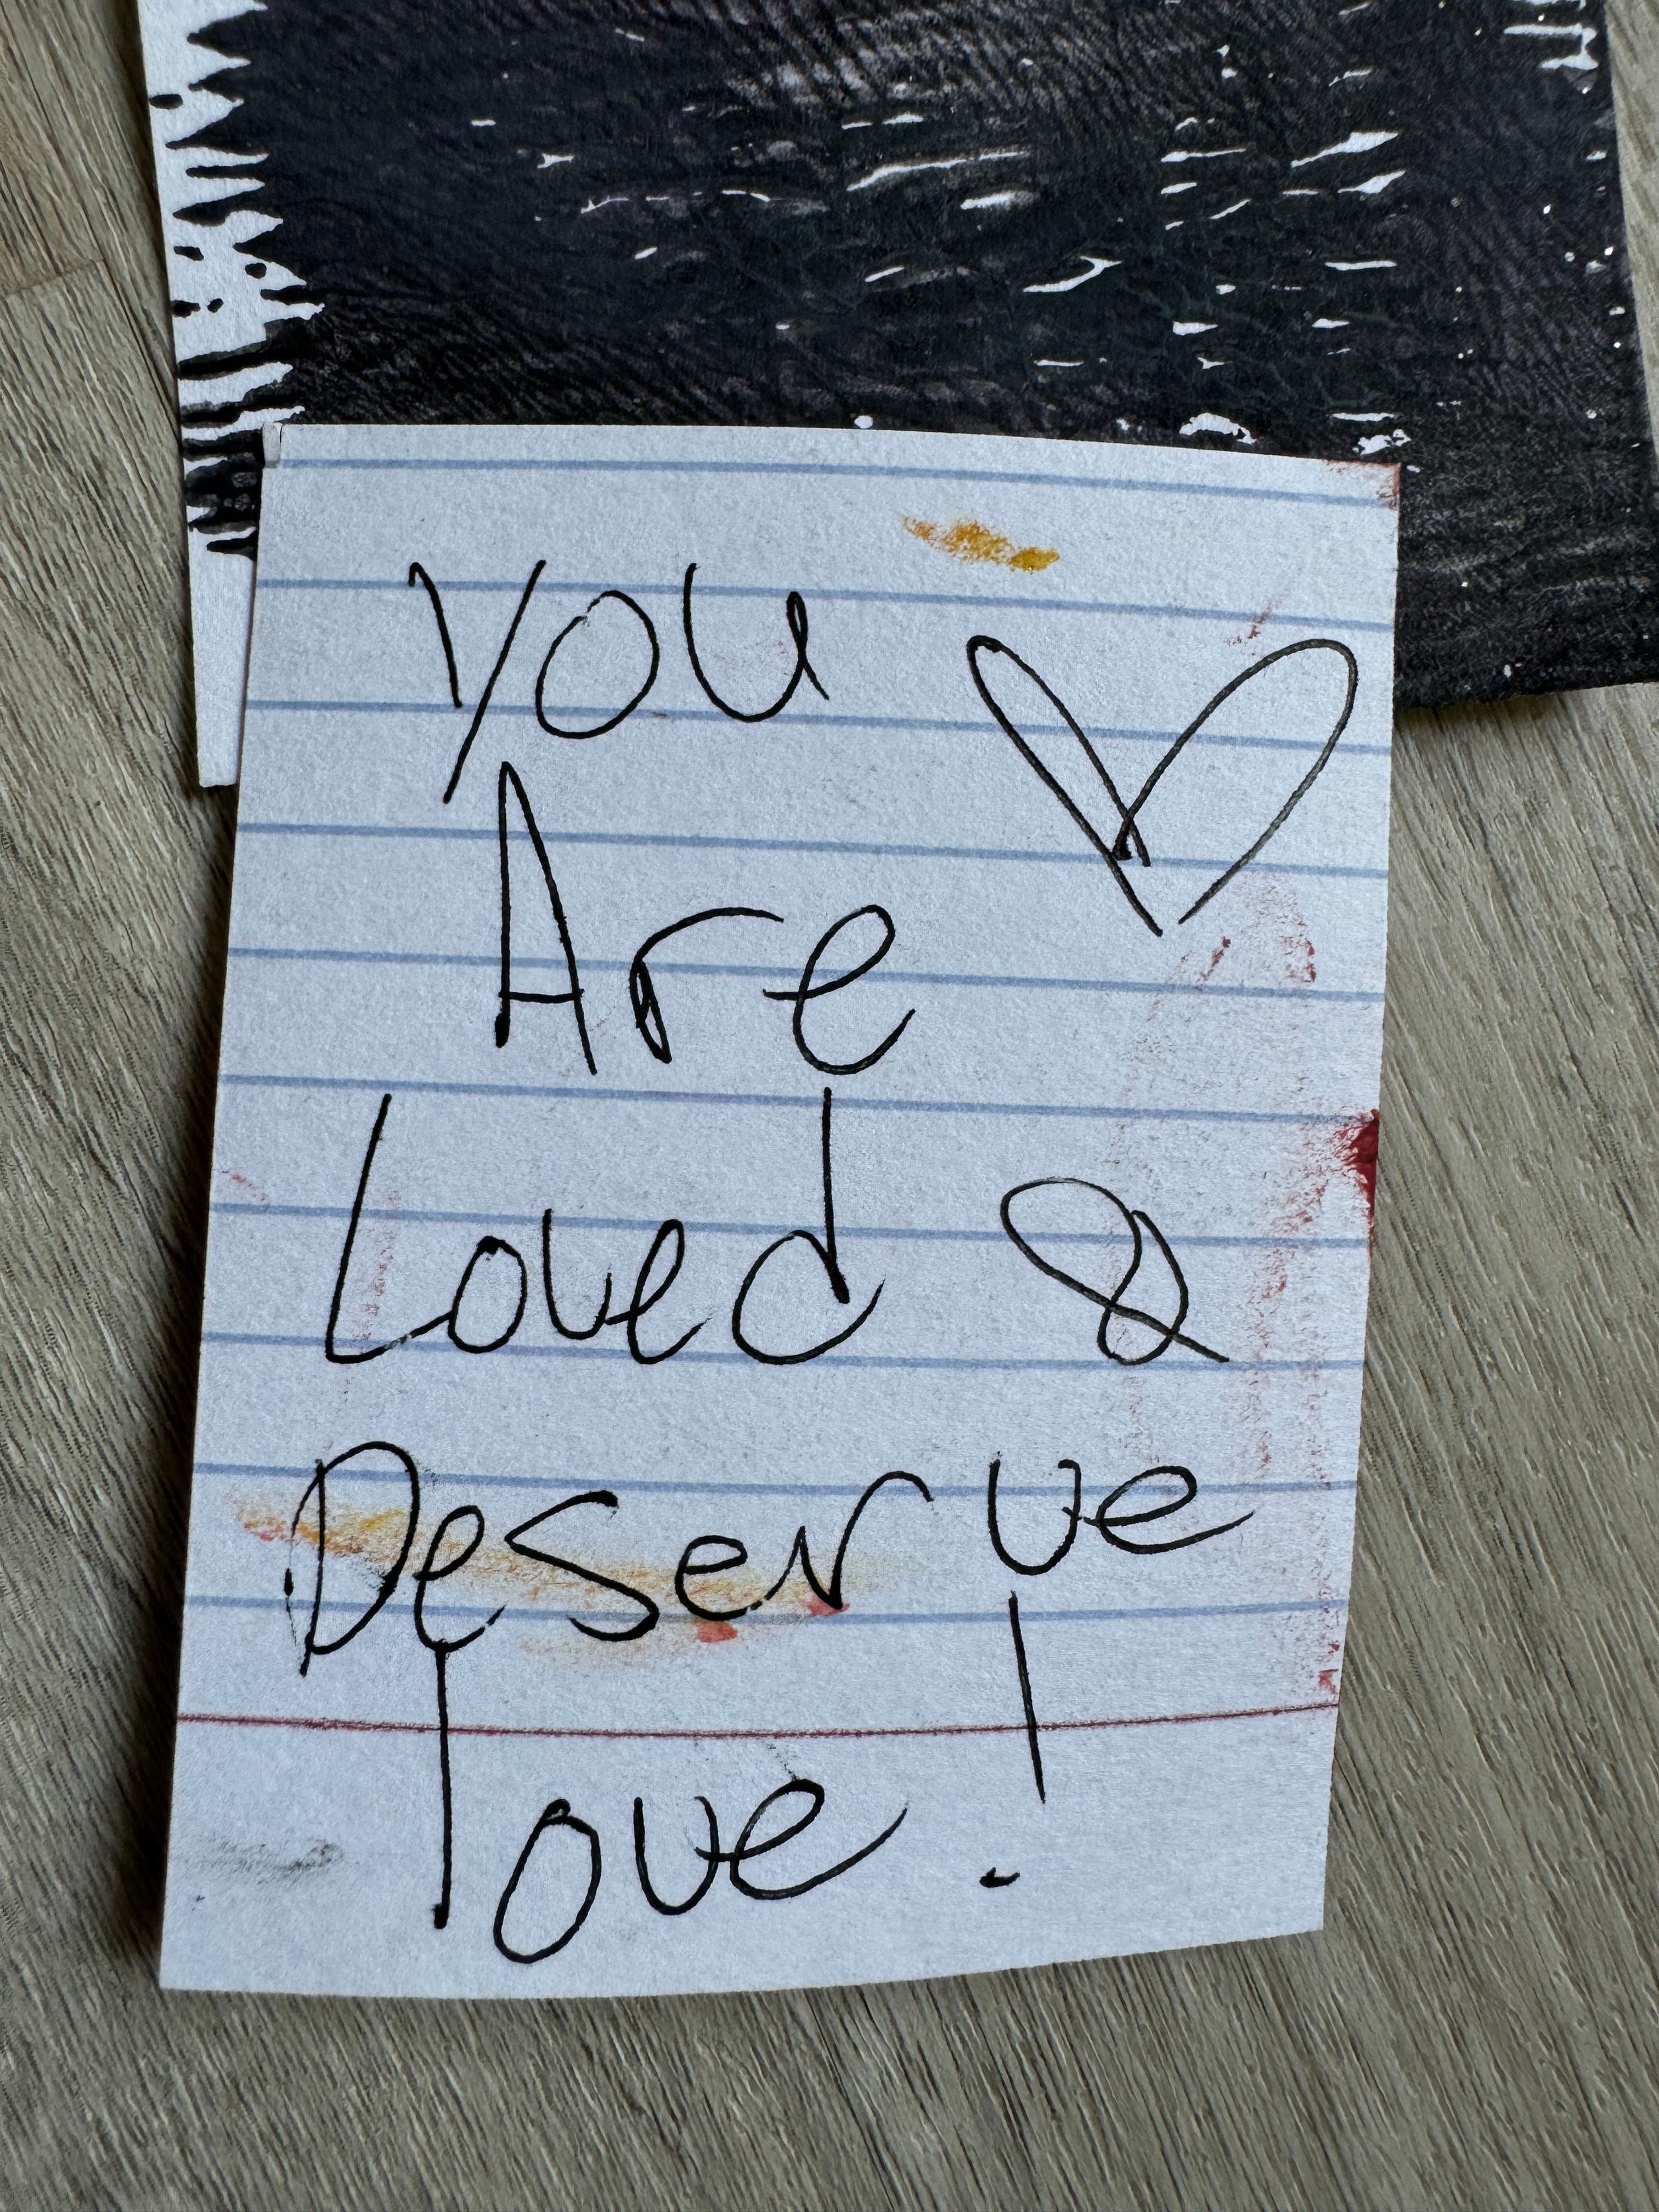 You
Are
Loved &
Deserve
love!